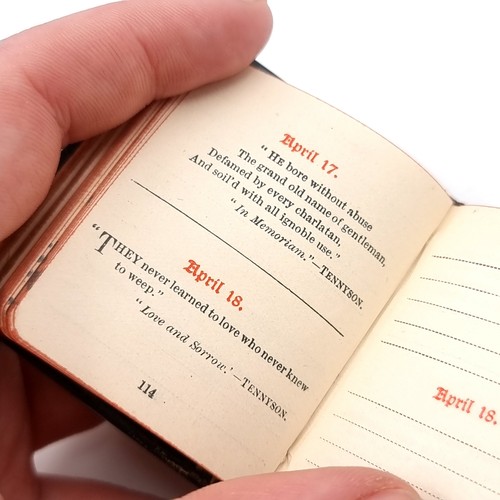 April 17.
“ HE bore without abuse
The grand old name of gentleman,
Defamed by every charlatan,
And soil'd with all ignoble use.”
“ In Memoriam.”—TENNYSON.
April 18.
“THEY never learned to love who never knew
to weep.”
“Love and Sorrow.'—TENNYSON.
114
April 18.